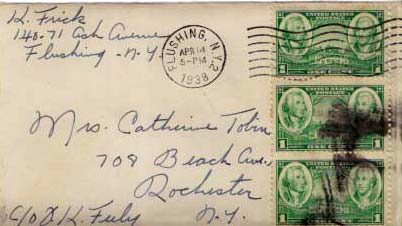 K. Frick
140-71 Ash Avenue
Flushing - N.Y.
FLUSHING, N.Y. 2
APR 14
5-PM
1938
UNITED STATES
POSTAGE
ONE CENT
1 1
UNITED STATES
POSTAGE
1 1
UNITED STATES
POSTAGE
1 1
Mrs. Catherine Tobin
708 Beach Ave.
Rochester
N.Y.
C/O